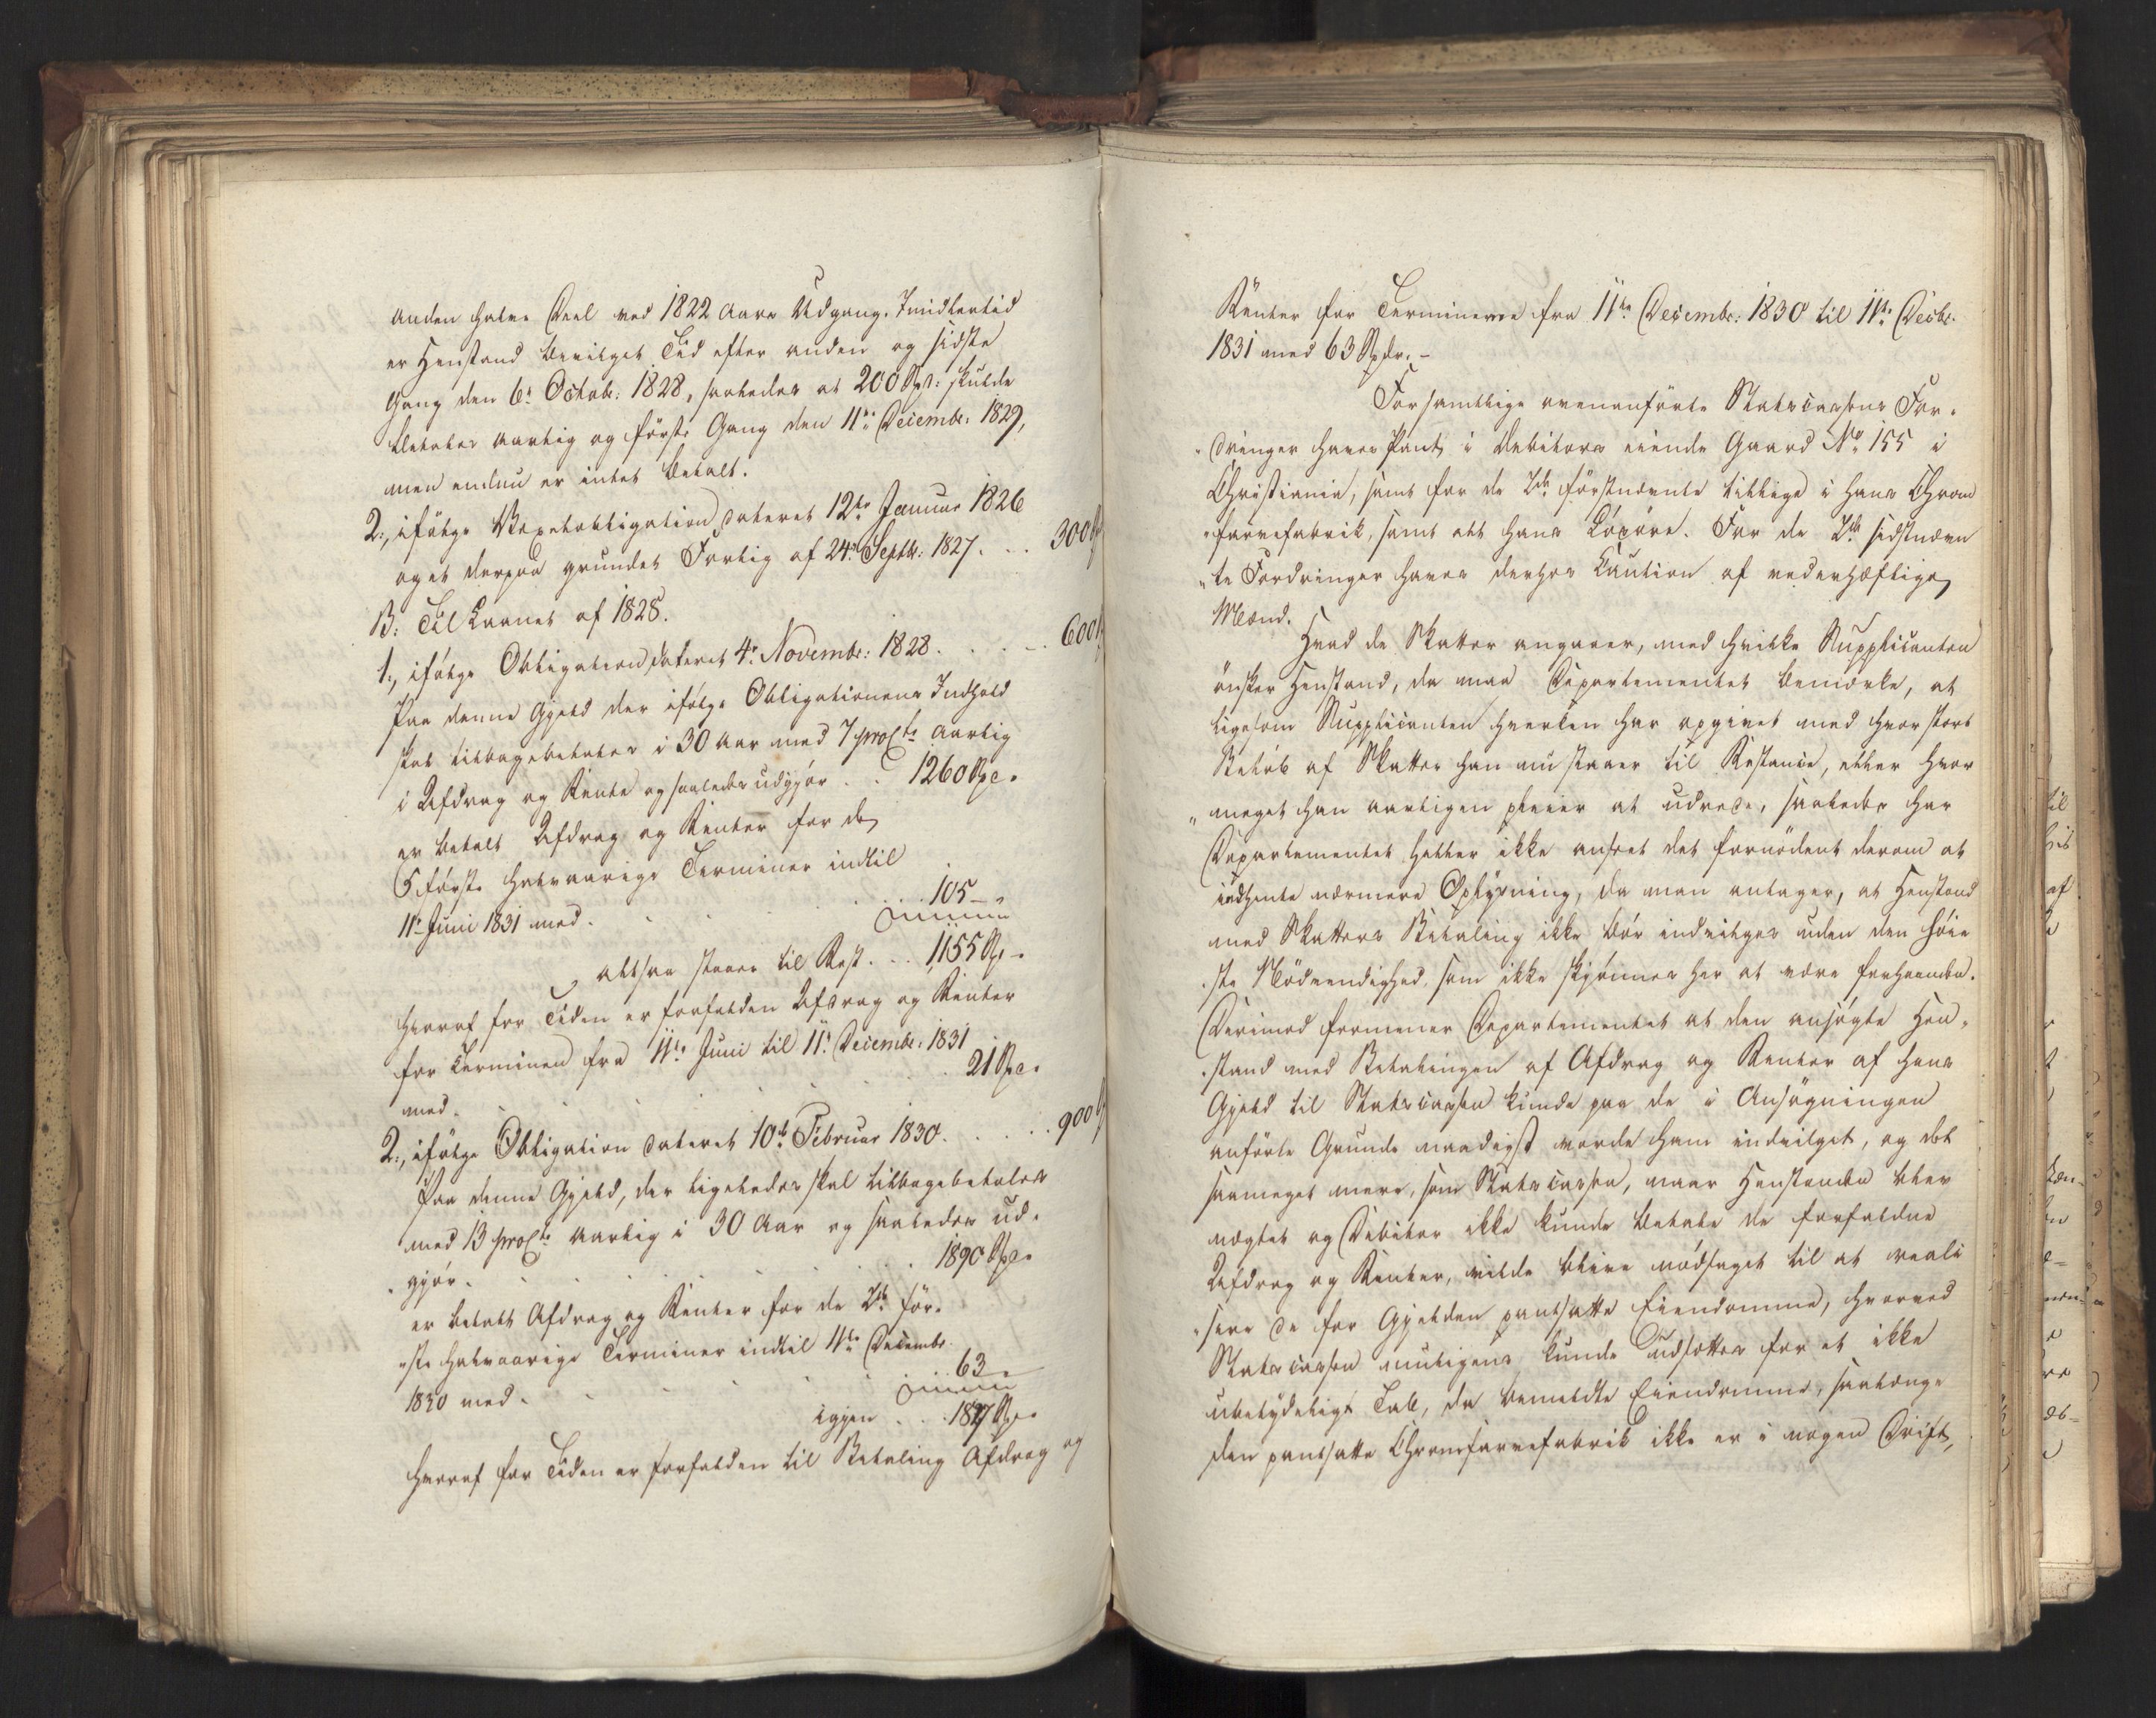 anden halve Deel ved 1822 Aars Udgang. Imidlertid
er Henstand bevilget Tid efter anden og sidste
Gang den 6te Octob: 1828, saaledes at 200 Spd: skulde
betales aarlig og første Gang den 11te Decembr: 1829,
men endnu er intet betalt.
2., ifølge Vexelobligation dateret 12te Januar 1826
og et derpaa grundet Forlig af 24de Septbr: 1827. . . 300
B: Til Laanet af 1828.
1., ifølge Obligation dateret 4de Novembr: 1828. . . . 600
Paa denne Gjeld der ifølge Obligationens Indhold
skal tilbagebetales i 30 Aar med 7 proCto aarlig
i Afdrag og Rente og saaledes udgjør . . 1260 Spd.
er betalt Afdrag og Renter for de
5 første halvaarige Terminer indtil
11te Juni 1831 med . . . 105 -
altsaa staaer til Rest. . . 1155 Spd.
hvoraf for Tiden er forfalden Afdrag og Renter
for Terminen fra 11te Juni til 11te Decembr: 1831
med . . . 21 Spd.
2., ifølge Obligation dateret 10de Februar 1830. . . . 900
Paa denne Gjeld, der ligeledes skal tilbagebetales
med 13 proCto aarlig i 30 Aar og saaledes ud-
gjør . . . 1890 Spd.
er betalt Afdrag og Renter for de 2de før-
ste halvaarige Terminer indtil 11te Decembr
1830 med . . . 63 -
igjen . . . 1827 Spd.
hvoraf for Tiden er forfalden til Betaling Afdrag og
Renter for Terminerne fra 11te Decembr: 1830 til 11te Decbr.
1831 med 63 Spdr. -
For samtlige ovenanførte Statscassens For-
dringer haves Pant i Debitors eiende Gaard No 155 i
Christiania, samt for de 2de førstnævnte tillige i hans Chrom
farvefabrik, samt alt hans Løsøre. For de 2de sidstnævn
te Fordringer haves derhos Caution af vederhæftige
Mænd.
Hvad de Skatter angaaer, med hvilke Supplicanten
ønsker Henstand, da maa Departementet bemærke, at
ligesom Supplicanten hverken har opgivet med hvor stort
Beløb af Skatter han nu staaer til Restance, eller hvor
meget han aarligen pleier at udrede, saaledes har
Departementet heller ikke anseet det fornødent derom at
indhente nærmere Oplysning, da man antager, at Henstand
med Skatters Betaling ikke bør indvilges uden den høie
ste Nødvendighed, som ikke skjønnes her at være forhaanden.
Derimod formener Departementet at den ansøgte Hen-
stand med Betalingen af Afdrag og Renter af hans
Gjeld til Statscassen kunde paa de i Ansøgningen
anførte Grunde naadigst vorde ham indvilget, og det
saameget mere, som Statscassen, naar Henstanden blev
nægtet og Debitor ikke kunde betale de forfaldne
Afdrag og Renter, vilde blive nødsaget til at reali
sere de for Gjelden pantsatte Eiendomme, hvorved
Statscassen muligens kunde udsættes for et ikke
ubetydeligt Tab, da bemeldte Eiendomme, saalænge
den pantsatte Chromfarvefabrik ikke er i nogen Drift,